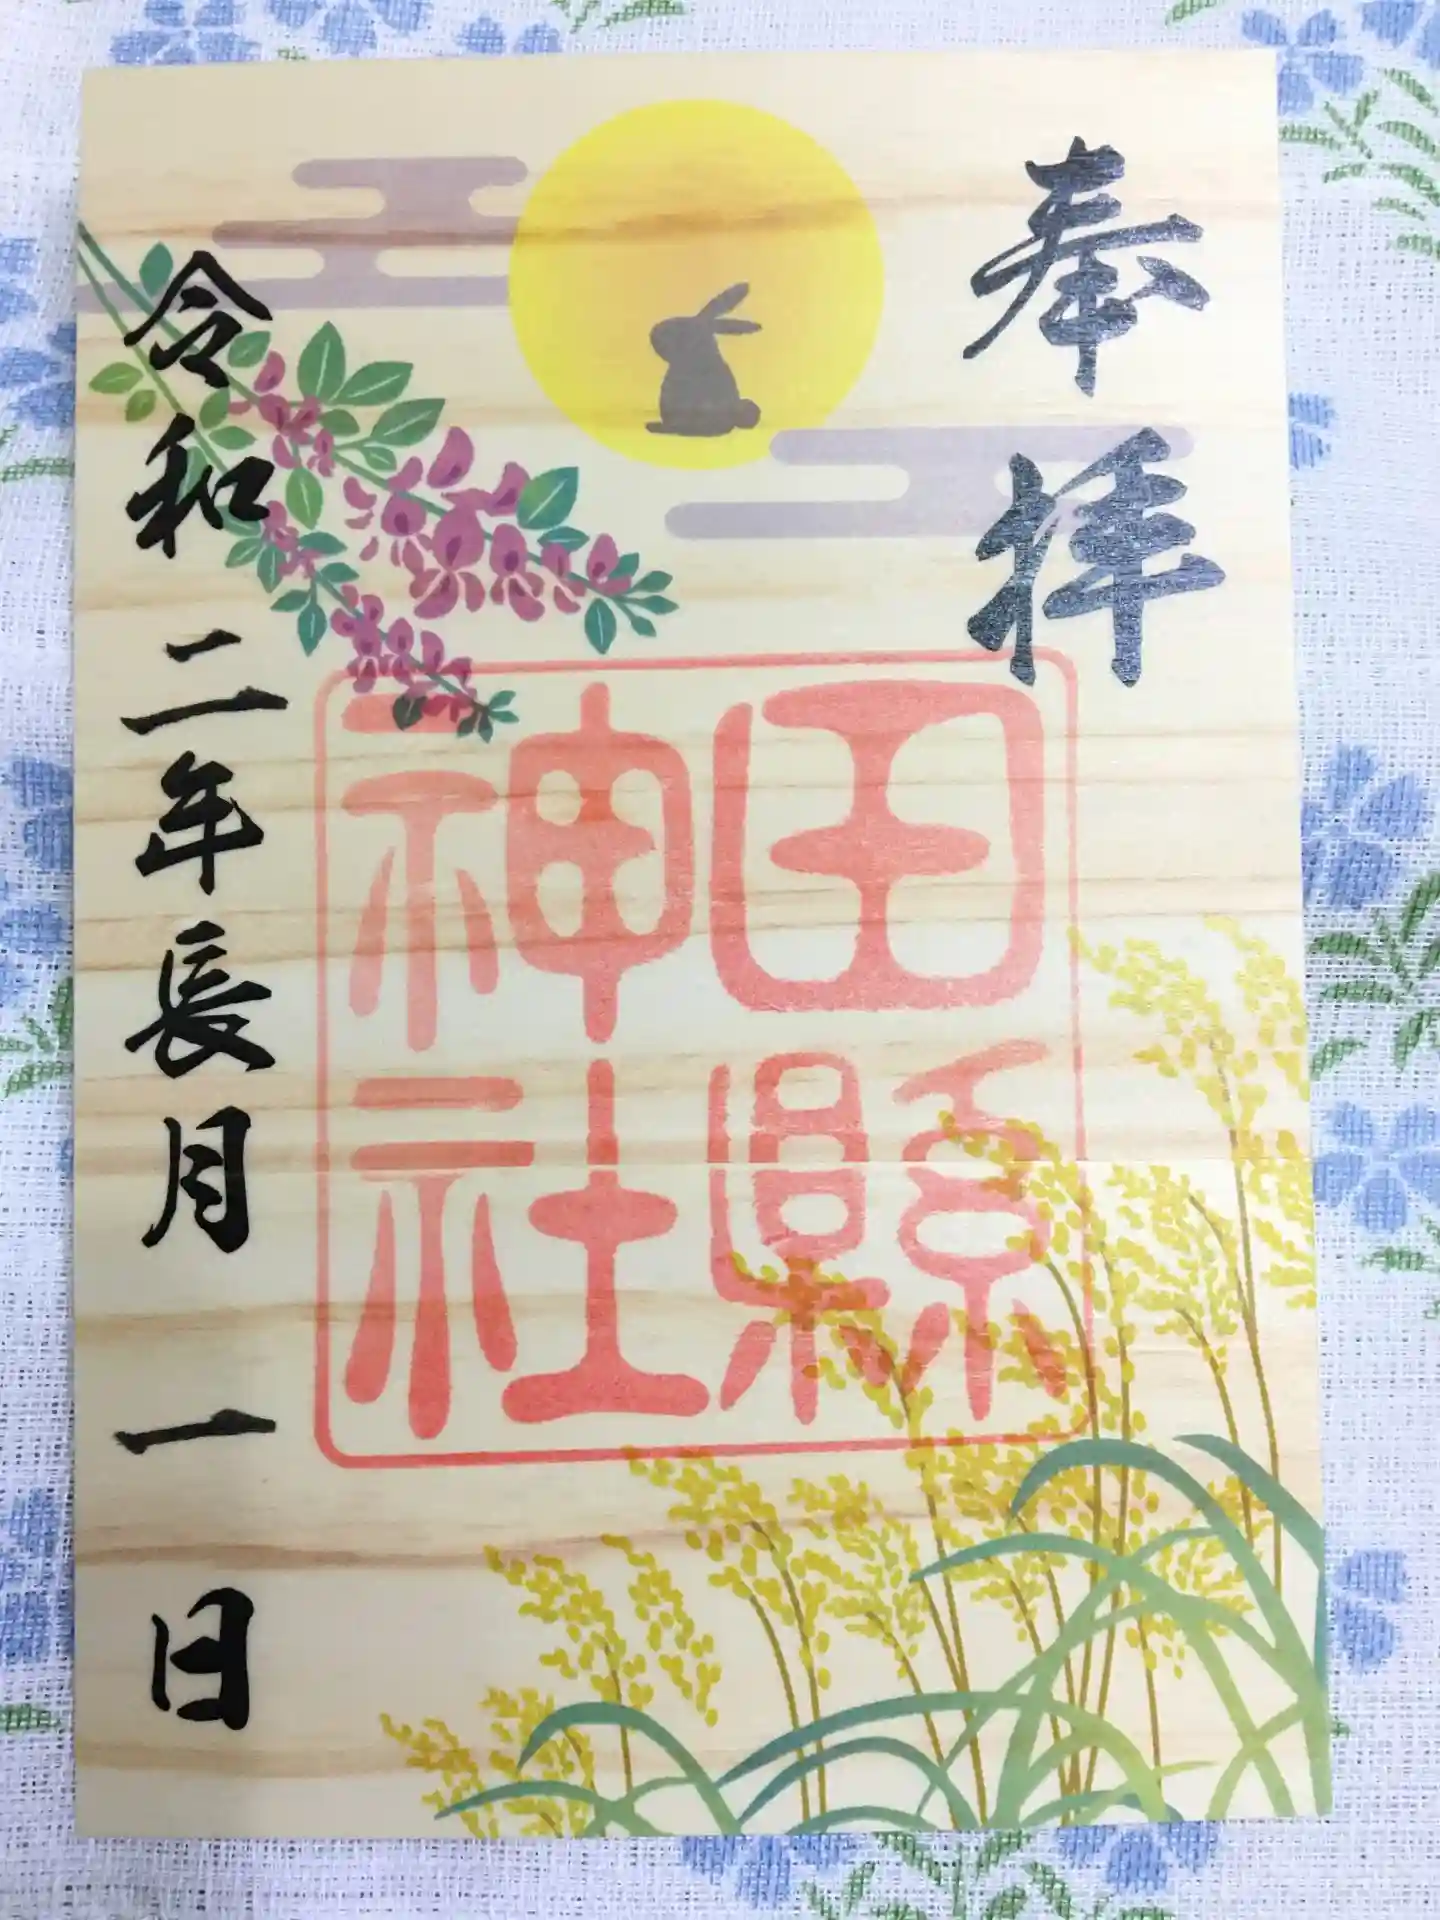 奉拝
田縣
神社
令和二年長月一日